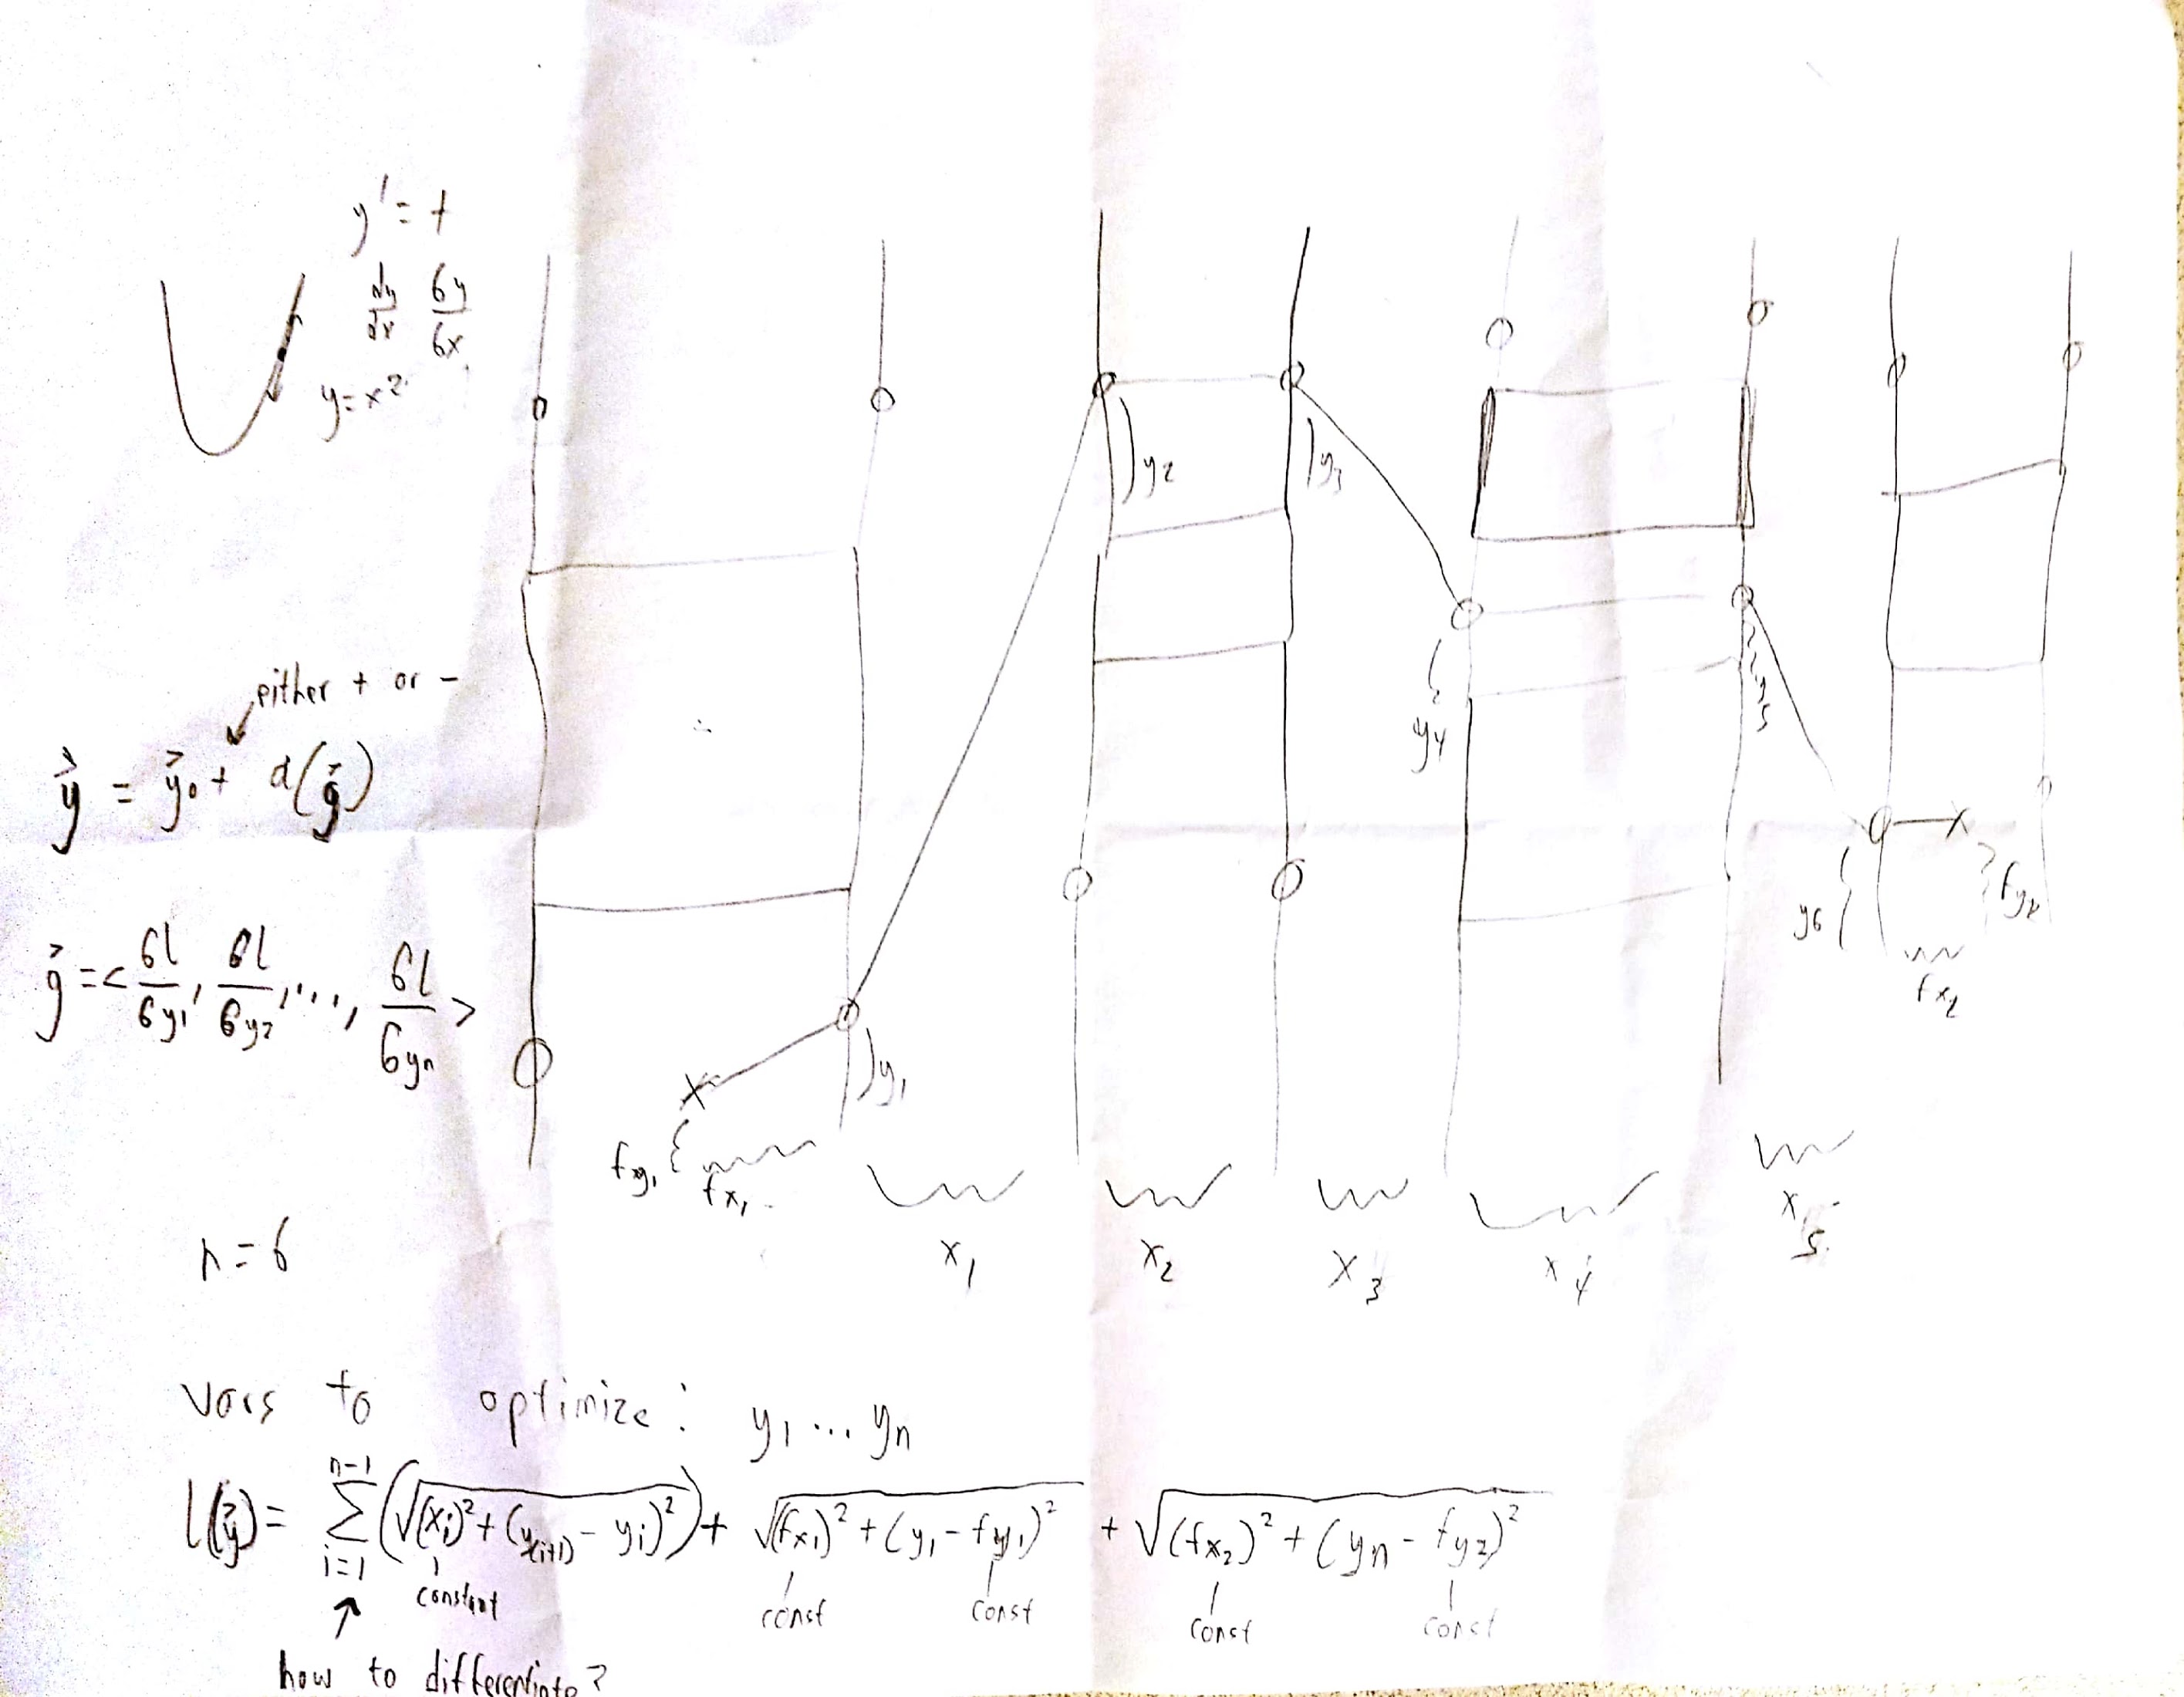 y' = +
dy/dx 6y/6x
y=x²
y2
y3
either + or -
y⃗ = y⃗₀ + d(g⃗)
y4
y5
g⃗ = < 6l/6y1, 6l/6y2, ..., 6l/6yn >
y6
fy2
fx2
y1
fy1
fx1
n=6
x1
x2
x3
x4
x5
vars to optimize: y1 ... yn
l(y⃗) = n-1 Σ i=1 (√((xi)² + (y(i+1) - yi)²)) + √((fx1)² + (y1 - fy1)²) + √((fx2)² + (yn - fy2)²)
constant
const
const
const
const
how to differentiate?